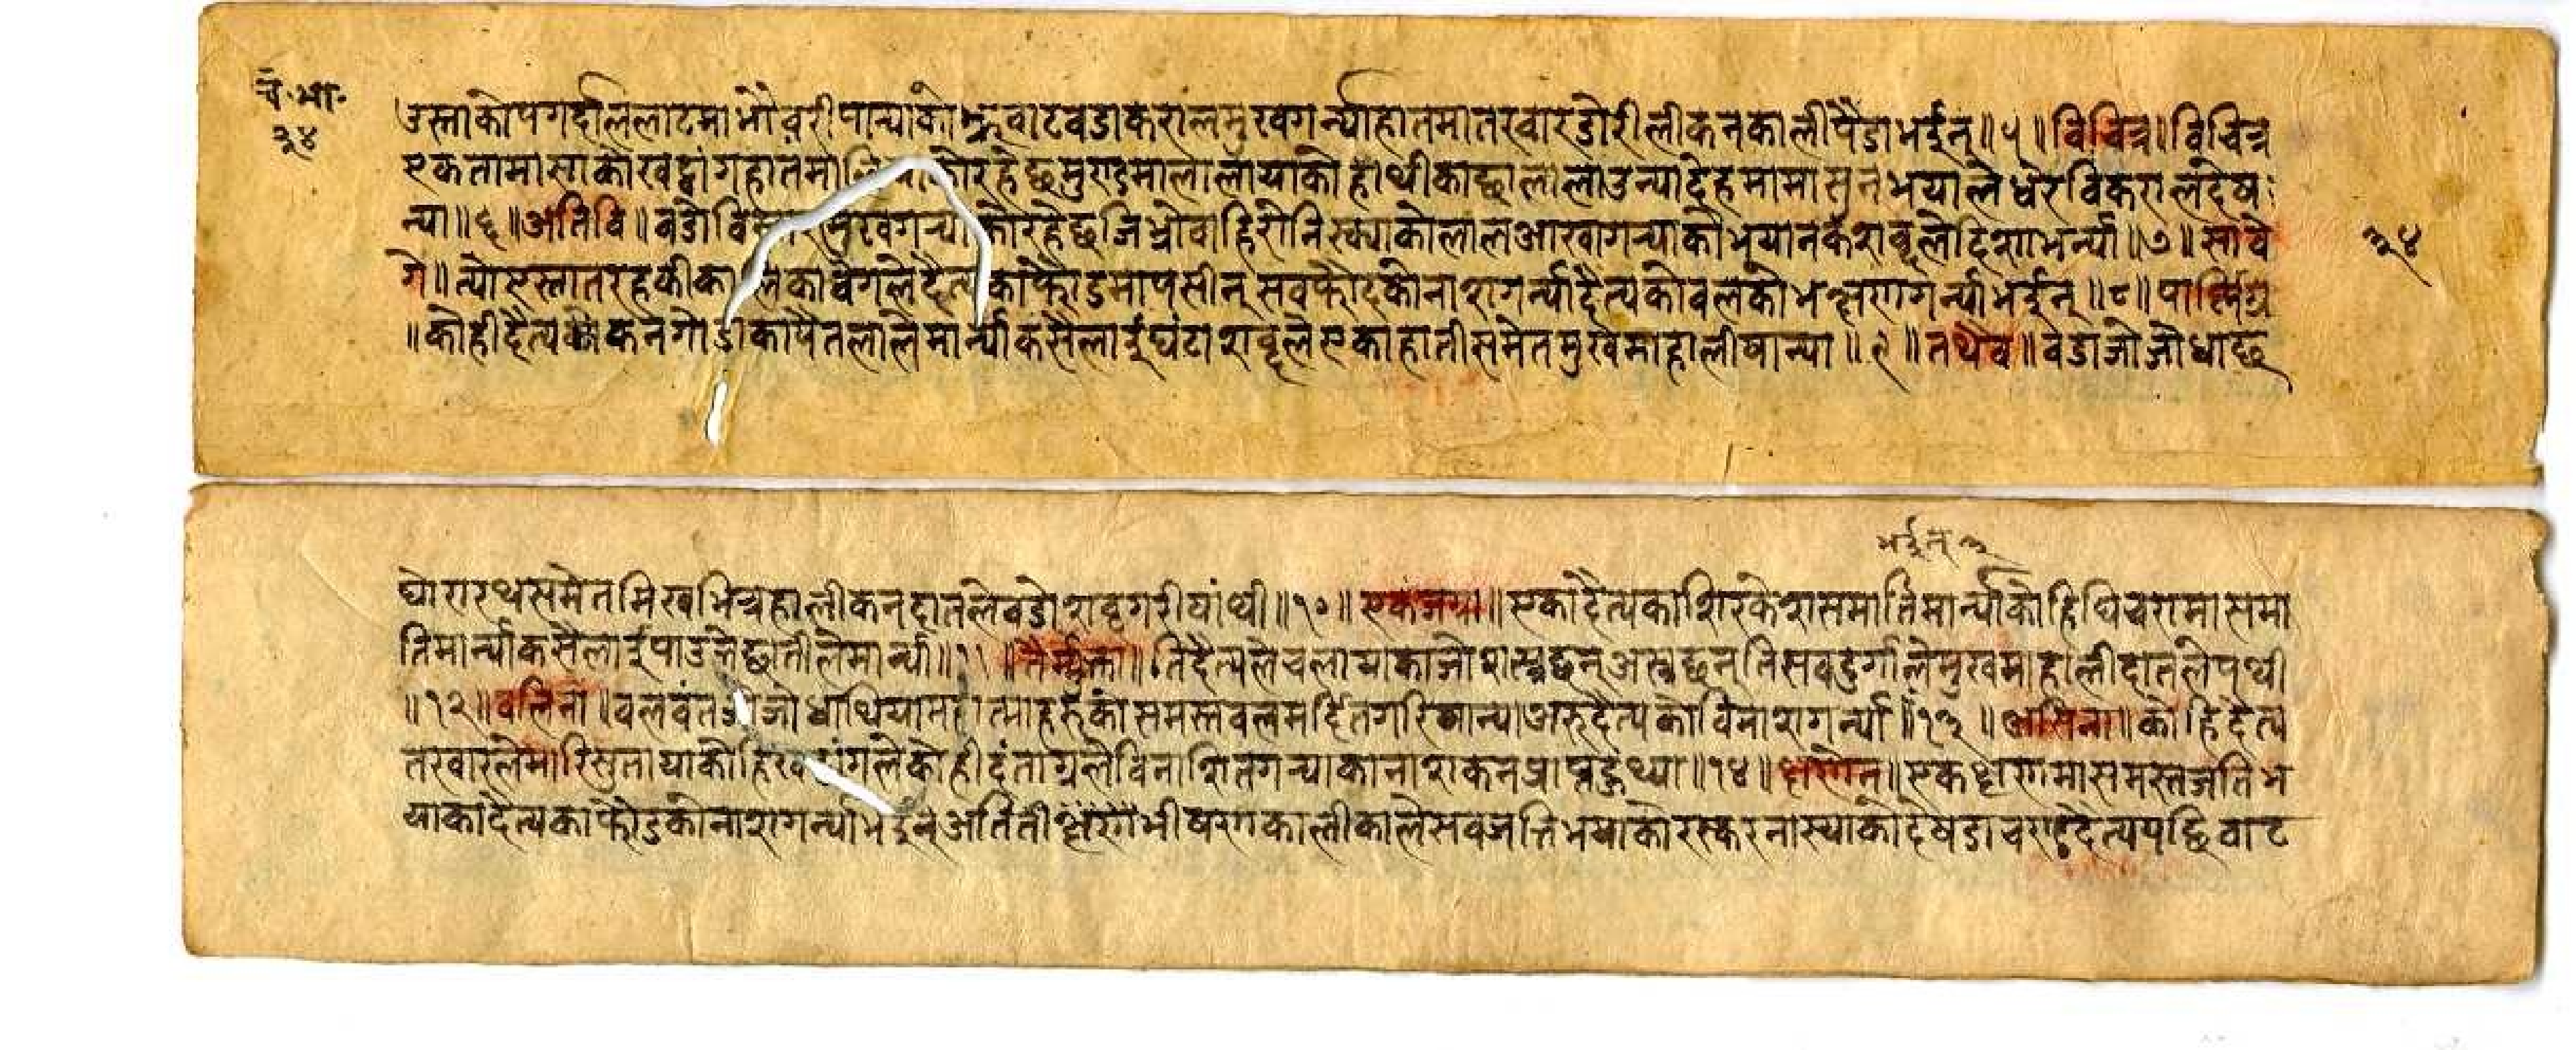 चं.भा.
३४
उस्ताकोपगर्दाललाटमाभौवरीपान्याकोभ्रूवाटवडाकरालमुखगर्न्याहातमातरवारडोरीलीकनकालीपैडाभईन्॥५॥विचित्र॥विचित्र
एकतामासाकोखट्वांगहातमा कोरहेछमुण्डमालालायाकोहाथीकाछालालाउन्यादेहमामासुनभयालेधेरविकरालदेष
न्या॥६॥अतिवि॥वडोविस्तारमुखगर्‍याकोरहेछजिभ्रोवाहिरोनिस्क्याकोलालआखागर्‍याकोभयानकशब्‌लेदिशाभर्न्या॥७॥सावे
३४
गे॥त्योएस्तातरहकीकालिकावेगलेदैत्यकाफौडमापसीन्सवफौदकोनाशगर्न्यादैत्यकोवलकोभक्षणगर्न्याभईन्॥८॥पार्ष्णिग्र
॥कोहीदैत्य कनगोडाकापैतलालेमार्न्याकसैलाईघंटाशब्‌लेएकाहातीसमेतमुखमाहालीषान्या॥९॥तथैव॥वडाजोजोधाछ
भईन् ३
घोरारथसमेतमिखभित्रहालीकनदातलेवडोशब्‌गरीषांथ्यी॥१०॥एकंजग्रा॥एकादैत्यकाशिरकेशसमातिमार्न्याकोहिघिचरामासमा
तिमार्न्याकसैलाईपाउलेछातीलेमार्न्या॥११॥तैर्मुक्ता॥तिदैत्यलेचलायाकाजोशस्त्रछन्अस्त्रछन्तिसवदुर्गालेमुखमाहालीदातलेपथी
॥१२॥वलिना॥वलवंतजोजोधाथियामहात्माहरुकोसमस्तवलमर्दितगरि षान्याअरुदैत्यकोविनाशगर्न्या॥१३॥असिना॥कोहिदैत्य
तरवारलेमारिसुतायाकोहिखट्वांगलेकोहीदंताग्रलेविनाशितगर्‍याकानाशकनप्राप्तहुंथ्या॥१४॥क्षणेन॥एकक्षणमासमस्तजतिभ
याकादैत्यकाफौडकोनाशगर्न्याभईन्अतितीक्ष्णभीषणकालीकालेसवजतिभयाको देषडाचरादैत्यपछिवाट